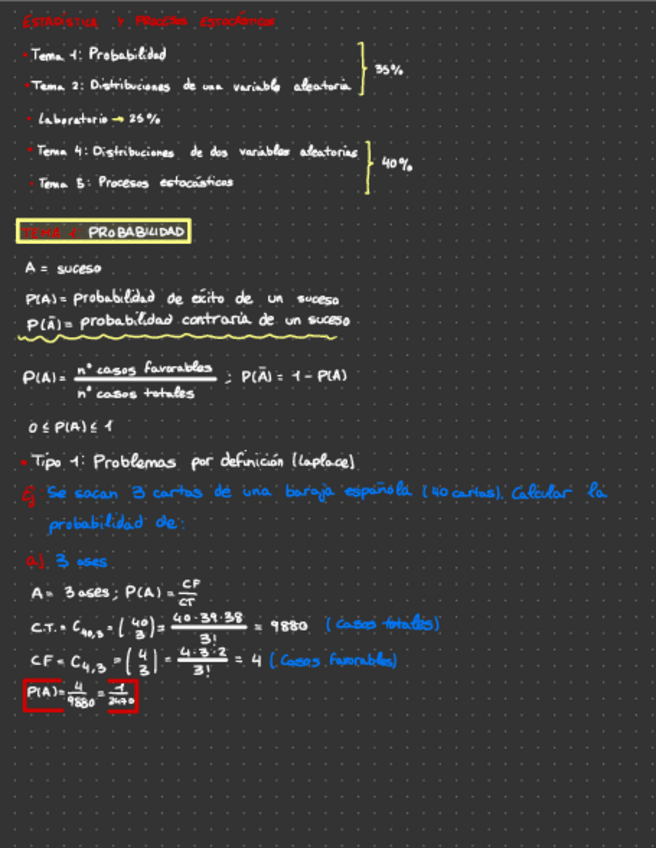 ESTADÍSTICA Y PROCESOS ESTOCÁSTICOS
• Tema 1: Probabilidad
• Tema 2: Distribuciones de una variable aleatoria } 35%
• Laboratorio → 25%
• Tema 4: Distribuciones de dos variables aleatorias
• Tema 5: Procesos estocásticos } 40%
TEMA 1 PROBABILIDAD
A = suceso
P(A) = probabilidad de exito de un suceso
P(Ā) = probabilidad contraria de un suceso
P(A) = nº casos favorables / nº casos totales ; P(Ā) = 1 - P(A)
0 ≤ P(A) ≤ 1
• Tipo 1: Problemas por definición (Laplace)
Ej Se sacan 3 cartas de una baraja española (40 cartas). Calcular la
probabilidad de:
a). 3 ases
A = 3 ases; P(A) = CF/CT
C.T. = C40,3 = (40 3) = 40·39·38/3! = 9880 (casos totales)
CF = C4,3 = (4 3) = 4·3·2/3! = 4 (Casos favorables)
P(A) = 4/9880 = 1/2470